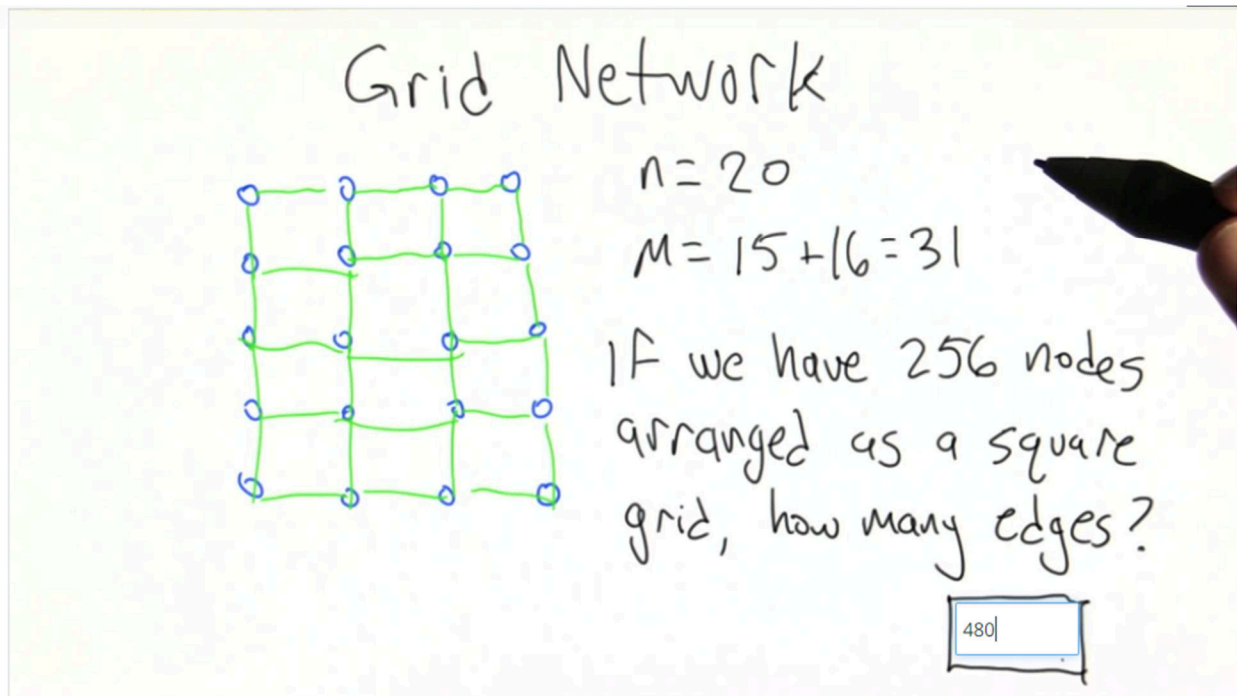 Grid Network
n=20
m=15+16=31
If we have 256 nodes
arranged as a square
grid, how many edges?
480